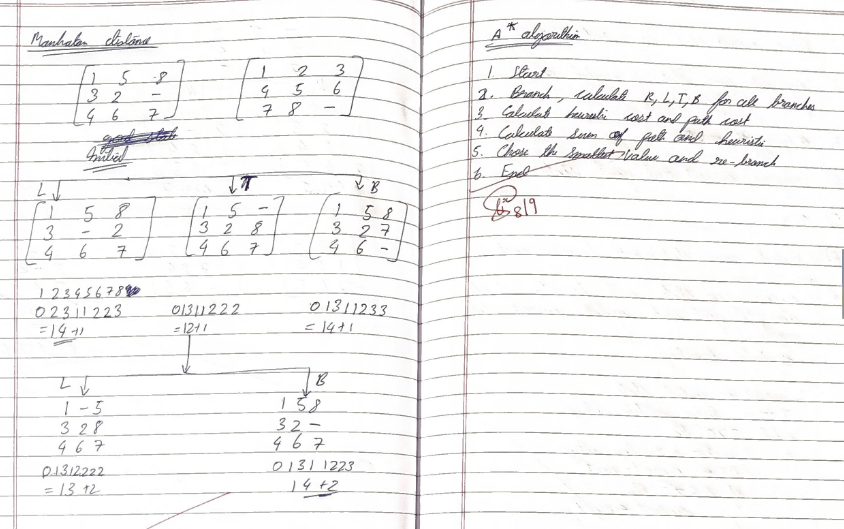 Manhatan distane
1 5 8
3 2 -
4 6 7
1 2 3
4 5 6
7 8 -
Initial
L T B
1 5 8
3 - 2
4 6 7
1 5 -
3 2 8
4 6 7
1 5 8
3 2 7
4 6 -
1 2 3 4 5 6 7 8
0 2 3 1 1 2 2 3
= 14 +1
0 1 3 1 1 2 2 2
= 12+1
0 1 3 1 1 2 3 3
= 14+1
L B
1 - 5
3 2 8
4 6 7
0 1 3 1 2 2 2 2
= 13 +2
1 5 8
3 2 -
4 6 7
0 1 3 1 1 2 2 3
14 +2
A* algorithm
1 Start
2. Branch, calculate R, L, T, B for all branches
3 Calculate heuristic cost and path cost
4. Calculate sum of path and heuristic
5. Chose the smallest value and re-branch
6. End
8/9